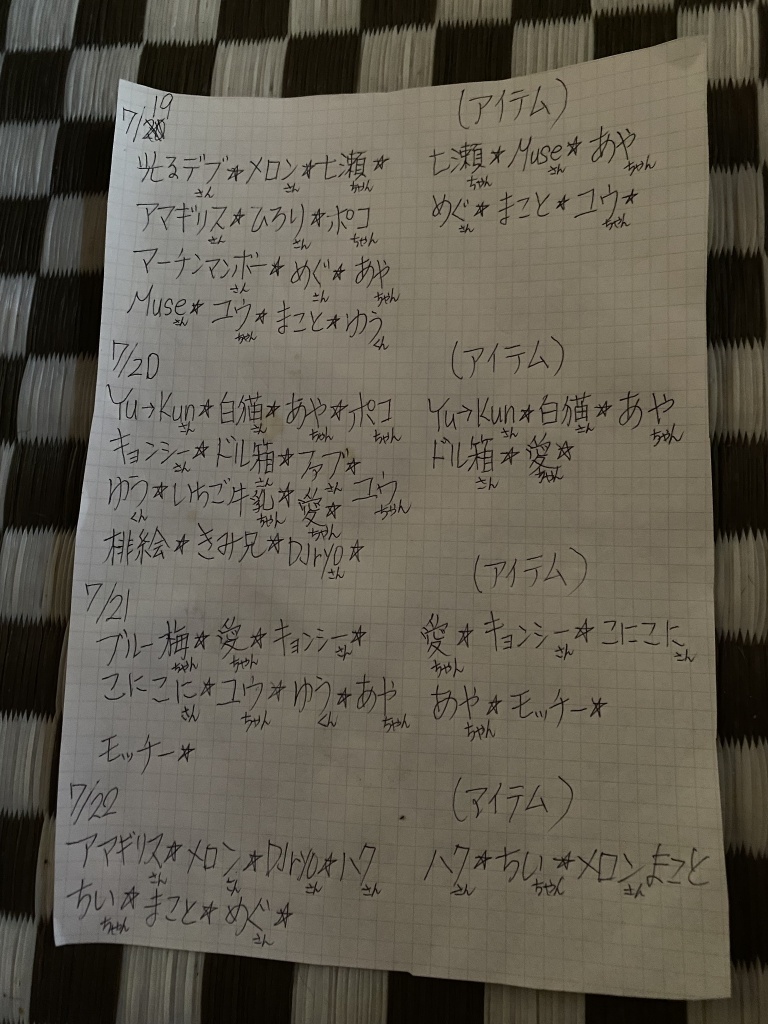 7/19
光るデブさん☆メロンさん☆七瀬ちゃん☆
アマギリスさん☆ひろりさん☆ポコちゃん
マーチンマンボーさん☆めぐさん☆あやちゃん
Museさん☆ユウちゃん☆まこと☆ゆうくん
(アイテム)
七瀬ちゃん☆Museさん☆あやちゃん
めぐさん☆まこと☆ユウちゃん☆
7/20
Yu→Kunさん☆白猫さん☆あやちゃん☆ポコちゃん
キョンシーさん☆ドル箱さん☆ファブさん☆
ゆうくん☆いちご牛乳ちゃん☆愛ちゃん☆ユウちゃん
緋絵☆きみ兄☆DJryoさん☆
(アイテム)
Yu→Kunさん☆白猫さん☆あやちゃん
ドル箱さん☆愛ちゃん☆
7/21
ブルー梅ちゃん☆愛ちゃん☆キョンシーさん☆
こにこにさん☆ユウちゃん☆ゆうくん☆あやちゃん
モッチー☆
(アイテム)
愛ちゃん☆キョンシーさん☆こにこにさん
あやちゃん☆モッチー☆
7/22
アマギリスさん☆メロンさん☆DJryoさん☆ハクさん
ちいちゃん☆まこと☆めぐさん☆
(アイテム)
ハクさん☆ちいちゃん☆メロンさんまこと